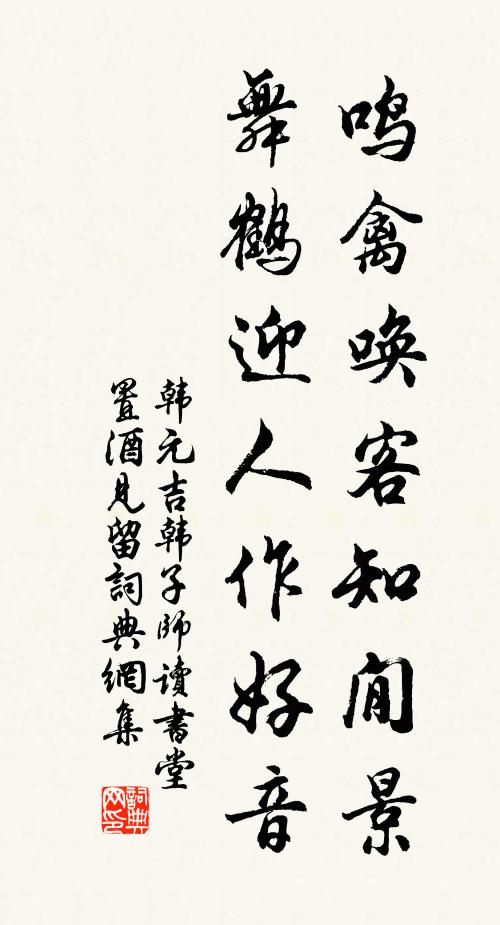 鸣禽唤客知闲景
舞鹤迎人作好音
韩元吉韩子师读书堂
置酒见留词典網集
詞典网印